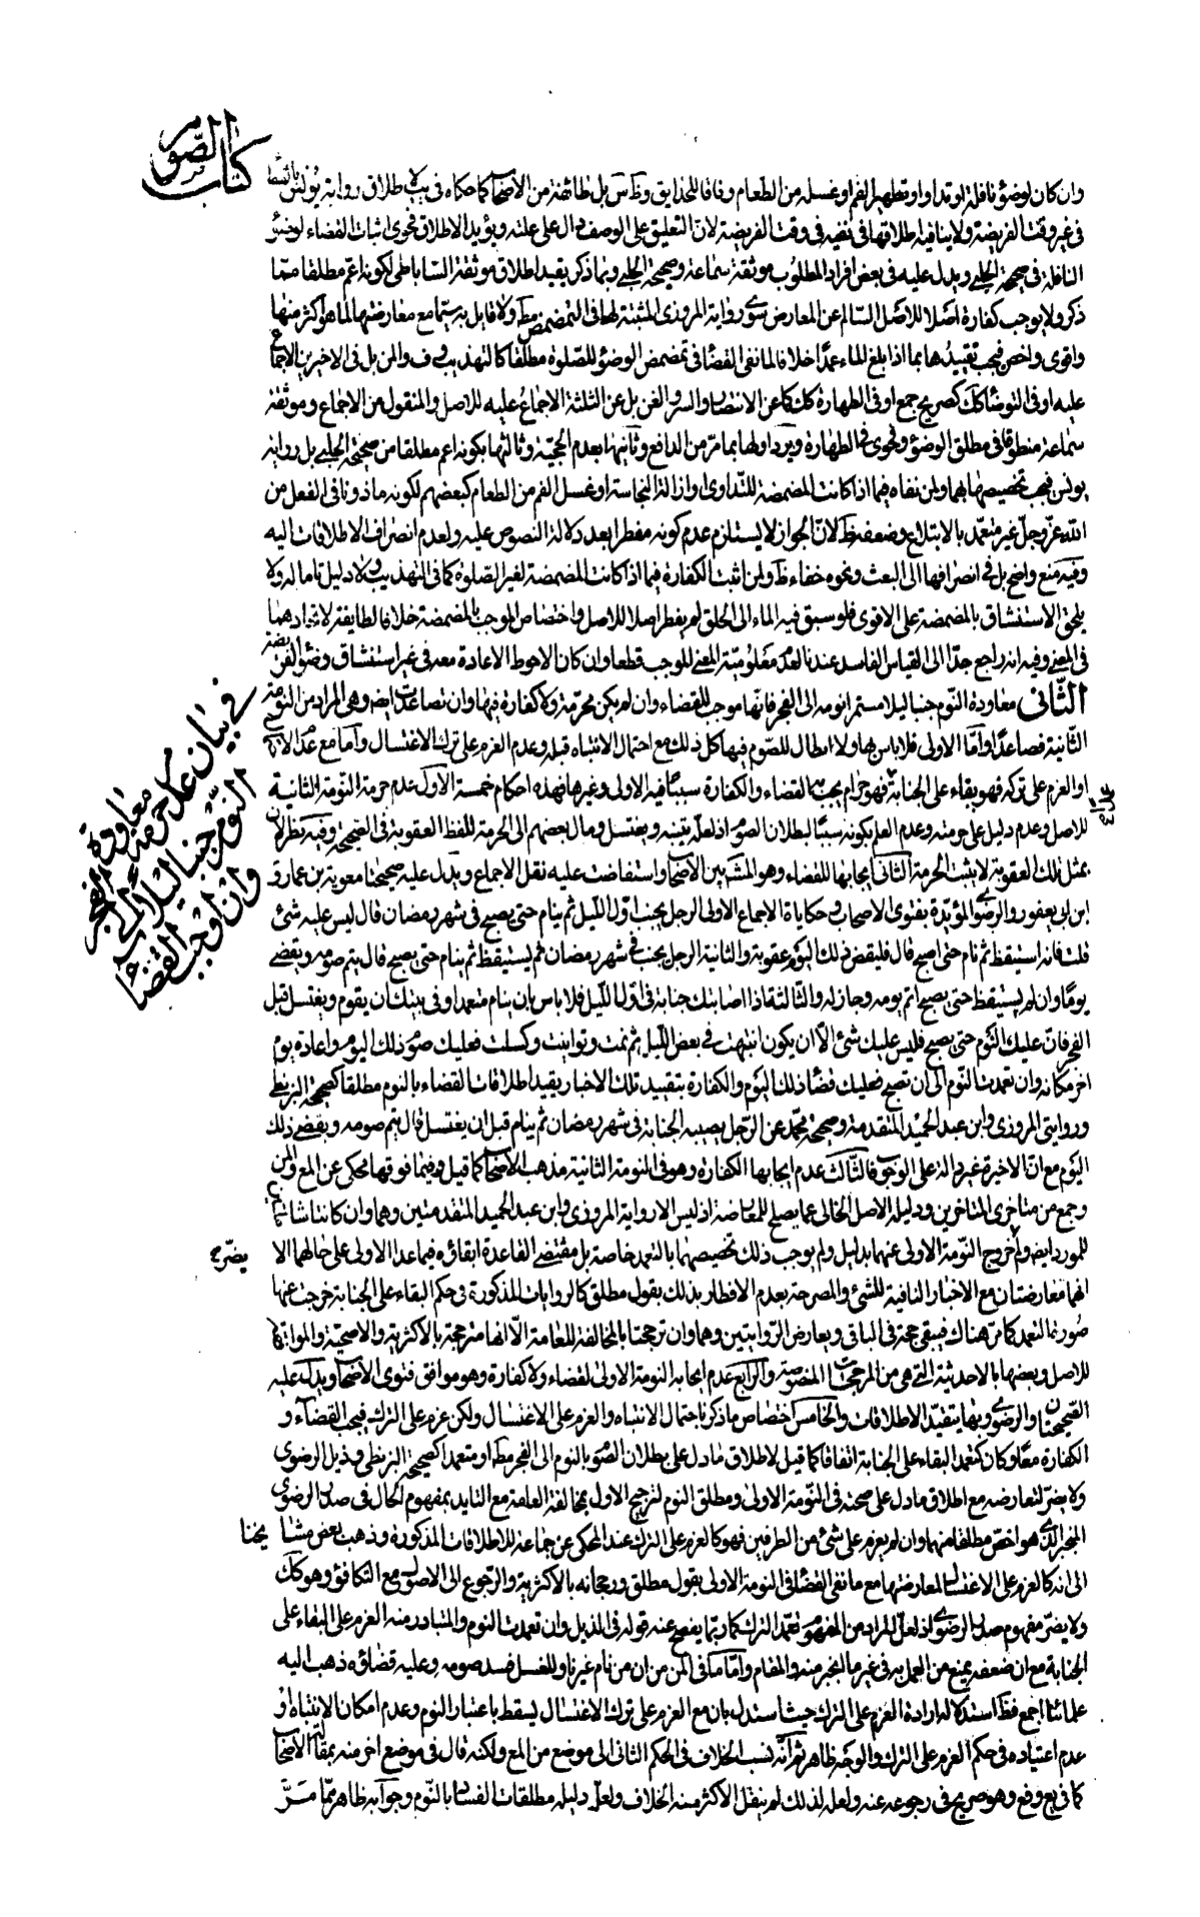 كتاب الصوم
وان كان لوضوء نافلة او تداو او تطهير الفم او غسله من الطعام وفاقا للحدايق بل طائفة من الاصحاب كما حكاه في لاطلاق رواية يونس
في غير وقت الفريضة ولا ينافيه اطلاقها في نفيه في وقت الفريضة لان التعليق على الوصف دال على عليته ويؤيد الاطلاق فحوى اثبات القضاء لوضوء
النافلة في صحيحة الحلبي ويدل عليه في بعض افراد المطلوب موثقة سماعة وصحيحة الحلبي وبما ذكر يقيد اطلاق موثقة الساباطي لكونه اعم مطلقا مما
ذكر ولا يوجب كفارة اصلا للاصل السالم عن المعارض سوى رواية المروزي المثبتة لها في التمضمض مط ولا قايل به سيما مع معارضتها لما هو اكثر منها
واقوى واخص فيجب تقييدها بما اذا بلغ الماء عمدا خلافا لمن نفى القضاء في تمضمض الوضوء للصلوة مطلقا كالتهذيب و ف والمن بل في الاخيرين الاجماع
عليه او في التوضأ كك كصريح جمع او في الطهارة كك كما عن الانتصار والسرائر والغنية بل عن الثلثة الاجماع عليه للاصل والمنقول من الاجماع وموثقة
سماعة منطوقا في مطلق الوضوء وفحوى في الطهارة ويرد اولها بما مر من الدافع وثانيها بعدم الحجية وثالثها بكونه اعم مطلقا من صحيحة الحلبي بل رواية
يونس فيجب تخصيصها بهما ولمن نفاه فيما اذا كانت المضمضة للتداوي او ازالة النجاسة او غسل الفم من الطعام كبعضهم لكونه ماذونا في الفعل من
الله عز وجل غير متعمد بالابتلاع وضعفه ظ لان الجواز لا يستلزم عدم كونه مفطرا بعد دلالة النصوص عليه ولعدم انصراف الاطلاقات اليه
وفيه منع واضح بل في انصرافها الى العبث ونحوه خفاء ظ ولمن اثبت الكفارة فيما اذا كانت المضمضة لغير الصلوة كما في التهذيب ولا دليل تاما له ولا
يلحق الاستنشاق بالمضمضة على الاقوى فلو سبق فيه الماء الى الحلق لم يفطر اصلا للاصل واختصاص الموجب بالمضمضة خلافا لطايفة لاتحادهما
في المعنى وفيه انه راجع جدا الى القياس الفاسد عندنا لعدم معلومية المعنى الموجب قطعا وان كان الاحوط الاعادة معه في غير استنشاق وضوء الفريضة
الثاني معاودة النوم جنبا ليلا مستمرا نومه الى الفجر فانها موجب للقضاء وان لم يكن محرمة ولا كفارة فيها وان تصاعدت ايضا وهي المراد من النومة
الثانية فصاعدا واما الاولى فلا باس بها ولا ابطال للصوم فيها كل ذلك مع احتمال الانتباه قبله وعدم العزم على ترك الاغتسال واما مع عدم الاول
او العزم على تركه فهو بقاء على الجنابة فهو حرام يجب بها القضاء والكفارة سببا فيه الاولى وغيرها فهذه احكام خمسة الاول عدم حرمة النومة الثانية
للاصل وعدم دليل على حرمته وعدم العلم بكونه سببا لبطلان الصوم اذ لعله يتنبه ويغتسل ومال بعضهم الى الحرمة للفظ العقوبة في الصحيحة وفيه نظر لان
بمثل تلك العقوبة لا يثبت الحرمة الثاني ايجابها للقضاء وهو المشهور بين الاصحاب واستفاضت عليه نقل الاجماع ويدل عليه صحيحتا معوية بن عمار و
ابن ابي يعفور والرضوي المؤيدة بفتوى الاصحاب وحكاياة الاجماع الاولى الرجل يجنب اول الليل ثم ينام حتى يصبح في شهر رمضان قال ليس عليه شئ
قلت فانه استيقظ ثم نام حتى اصبح قال فليقض ذلك اليوم عقوبة والثانية الرجل يجنب في شهر رمضان ثم يستيقظ ثم ينام حتى يصبح قال يتم صومه ويقضي
يوما وان لم يستيقظ حتى يصبح اتم يومه وجاز له والثالثة اذا اصابتك جنابة في اول الليل فلا باس بان ينام متعمدا وفي نيتك ان يقوم ويغتسل قبل
الفجر فان غلبك النوم حتى يصبح فليس عليك شئ الا ان يكون انتبهت في بعض الليل ثم نمت وتوانيت وكسلت فعليك صوم ذلك اليوم واعادة يوم
اخر مكانه وان تعمدت النوم الى ان تصبح فعليك قضاء ذلك اليوم والكفارة بتقييد تلك الاخبار يقيد اطلاقات القضاء بالنوم مطلقا كصحيحة البزنطي
وروايتي المروزي وابن عبد الحميد المتقدمة وصحيحة محمد عن الرجل يصيبه الجنابة في شهر رمضان ثم ينام قبل ان يغتسل قال يتم صومه ويقضي ذلك
اليوم مع ان الاخيرة غير دالة على الوجوب فالثالث عدم ايجابها الكفارة وهو في النومة الثانية مذهب الاصحاب كما قيل وفيما فوقها محكي عن المع والمن
وجمع من متاخري المتاخرين ودليله الاصل الخالي عما يصلح للمعارضة اذ ليس الا رواية المروزي وابن عبد الحميد المتقدمتين وهما وان كانتا شاملتين
للمورد ايضا ولخروج النومة الاولى عنهما بدليل ولم يوجب ذلك تخصيصها بالتعمد خاصة بل مقتضى القاعدة ابقاؤه فيما عدا الاولى على حالهما الا
يضرح
انهما معارضتان مع الاخبار النافية للشئ والمصرحة بعدم الافطار بذلك بقول مطلق كالروايات المذكورة في حكم البقاء على الجنابة خرجت عنها
صورة التعمد كما مر هناك فيبقى حجة في الباقي ويعارض الروايتين وهما وان ترجحتا بالمخالفة للعامة الا انها مترجحة بالاكثرية والاصحية والموافقة
للاصل وبعضها بالاحدثية التي هي من المرجحات المنصوصة والرابع عدم ايجاب النومة الاولى لقضاء ولا كفارة وهو موافق فتوى الاصحاب ويدل عليه
الصحيحتان والرضوي وبها يتقيد الاطلاقات والخامس اختصاص ما ذكر باحتمال الانتباه والعزم على الاغتسال ولكن عزم على الترك فيجب القضاء و
الكفارة معا وكان كتعمد البقاء على الجنابة اتفاقا كما قيل لاطلاق ما دل على بطلان الصوم بالنوم الى الفجر مط او متعمدا كصحيحة البزنطي وذيل الرضوي
ولا يضر لتعارضه مع اطلاق ما دل على صحته في النومة الاولى ومطلق النوم لترجيح الاول بمخالفة العامة مع التايد بمفهوم الحال في صدر الرضوي
المنجبر الذي هو اخص مطلقا منهما وان لم يعزم على شئ من الطرفين فهو كالعزم على الترك عند المحكي عن جماعة للاطلاقات المذكورة وذهب بعض مشايخنا
الى انه كالعزم على الاغتسال لمعارضتها مع ما نفى القضاء في النومة الاولى بقول مطلق ورجحانه بالاكثرية والرجوع الى الاصول مع التكافؤ وهو كك
ولا يضر مفهوم صدر الرضوي اذ لعل المراد من المفهوم تعمد الترك كما ربما يفصح عنه قوله في الذيل وان تعمدت النوم والمتبادر منه العزم على البقاء على
الجنابة مع ان ضعفه يمنع من العمل به في غير ما انجبر منه والمقام واما ما في المن من ان من نام غير ناو للغسل فسد صومه وعليه قضاؤه ذهب اليه
علمائنا اجمع فظ استدلاله ارادة العزم على الترك حيث استدل بان مع العزم على ترك الاغتسال يسقط باعتبار النوم وعدم امكان الانتباه او
عدم اعتياده في حكم العزم على الترك والوجه ظاهر ثم انه نسب الخلاف في الحكم الثاني الى موضع من المع ولكنه قال في موضع اخر منه بمقالة الاصحاب
كما في يع و فع وهو صريح في رجوعه عنه ولعله لذلك لم ينقل الاكثر منه الخلاف ولعل دليله مطلقات الفساد بالنوم وجوابه ظاهر مما مر
في بيان على حرمة معاودة
النوم جنبا ليلا الى الفجر
وان اوجب القضاء